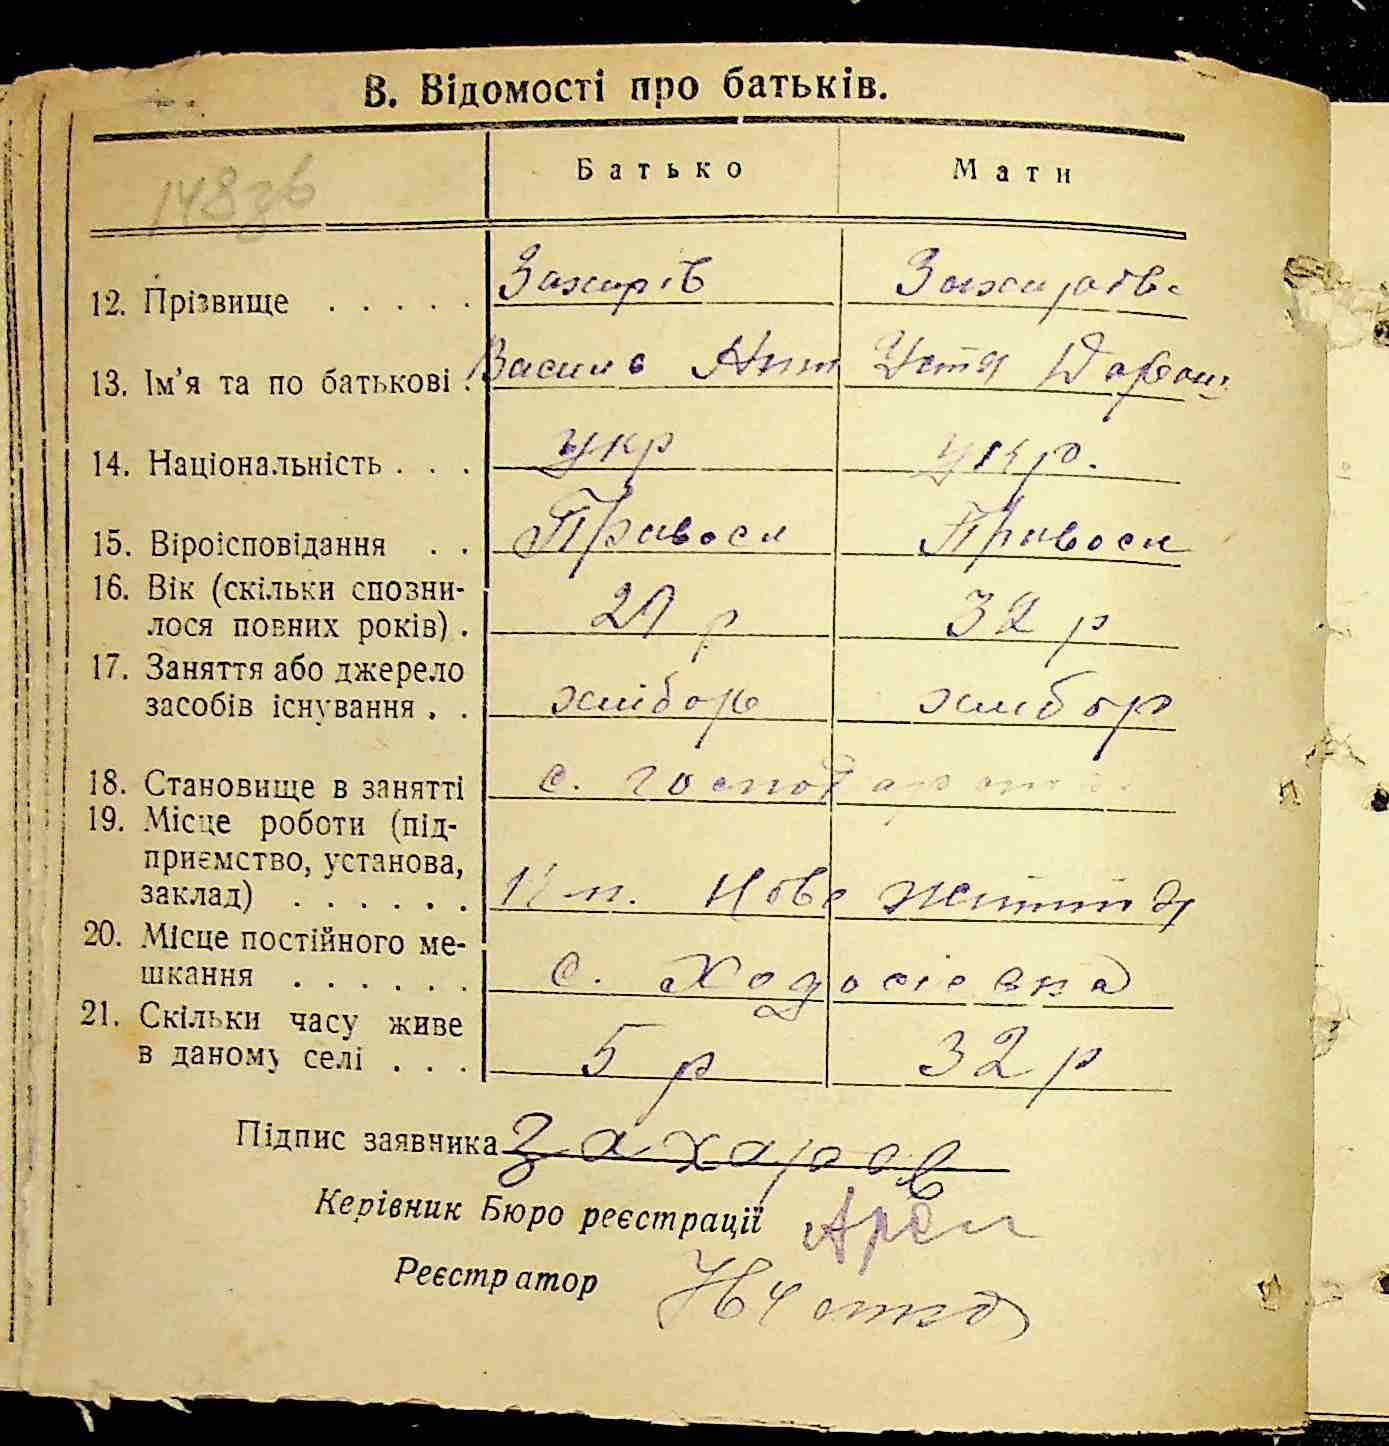 В. Відомості про батьків.
Батько Мати
148зв
12. Прізвище . . . . . Захарів Захарова
13. Ім'я та по батькові . Василь Ант Устя Дорош
14. Національність . . . укр укр.
15. Віроісповідання . . Правосл Правосл
16. Вік (скільки спозни-
лося повних років) . 29 р 32 р
17. Заняття або джерело
засобів існування . . хлібор хлібор
18. Становище в занятті с. господар
19. Місце роботи (під-
приємство, установа,
заклад) . . . . . . Нове життя
20. Місце постійного ме-
шкання . . . . . . с. Ходосієвка
21. Скільки часу живе
в даному селі . . . 5 р 32 р
Підпис заявника Захаров
Керівник Бюро реєстрації
Реєстратор